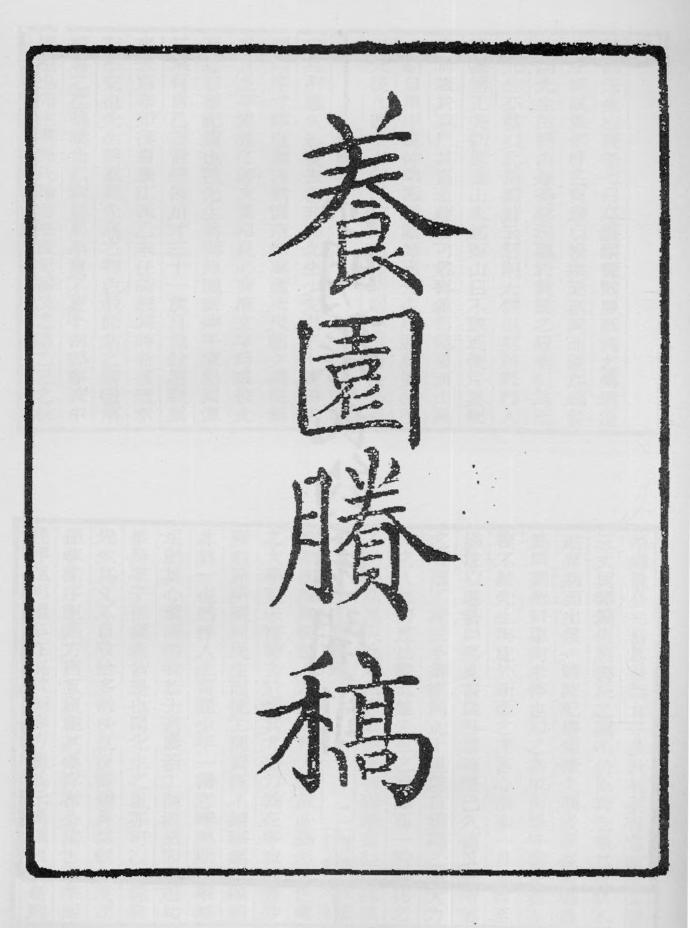 養園賸稿